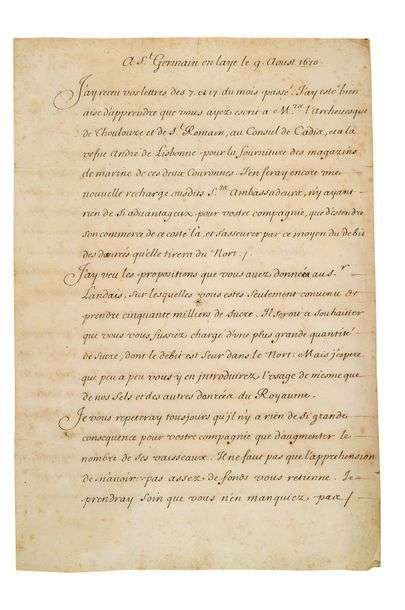 A S.t Germain en laye le 9. Aoust 1670
J'ay receu vos lettres des 7. et 17 du mois passé. J'ay esté bien
aise d'apprendre que vous ayez escrit a M.rs l'Archeuesque
de Thoulouze et de S.t Romain, au Consul de Cadis, et a la
vefue André de Lisbonne pour la fourniture des magazins
de marine de ces deux Couronnes. J'en feray encore vne
nouvelle recharge ausdits S.rs Ambassadeurs, n'y ayant
rien de si aduantageux pour vostre compagnie, que d'estendre
son commerce de ce costé là, et s'asseurer par ce moyen du debit
des danrées qu'elle tirera du Nort. /
J'ay veu les propositions que vous auez données au S.r
Landais, sur lesquelles vous estes seulement convenu de
prendre cinquante milliers de Sucre. Il seroit a souhaiter
que vous vous fussiez chargé d'vne plus grande quantité
de Sucre, dont le debit est seur dans le Nort. Mais j'espere
que peu a peu vous y en introduirez l'vsage de mesme que
de nos Sels et des autres danrées du Royaume.
Je vous repeteray tousjours qu'il n'y a rien de si grande
consequence pour vostre compagnie que d'augmenter le
nombre de ses vaisseaux. Il ne faut pas que l'apprehension
de n'auoir pas assez de fonds vous retienne. Je
prendray soin que vous n'en manquiez, par /